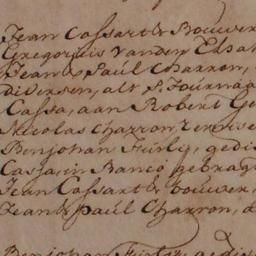 Jean Cossart & Bouwer
Gregorius vanden Edsar
Jean & Paúl Charron,
diversen, alt S. Joúrnaa
Cassa, aan Robert Ge
Nicolas Chazron
Benjohan Fúrly, gedis
Cassa, in Banco gebragt
Jean Cossart & Bouwer,
Jean & Paúl Charron, d
Benjohan Fúrly, gedis